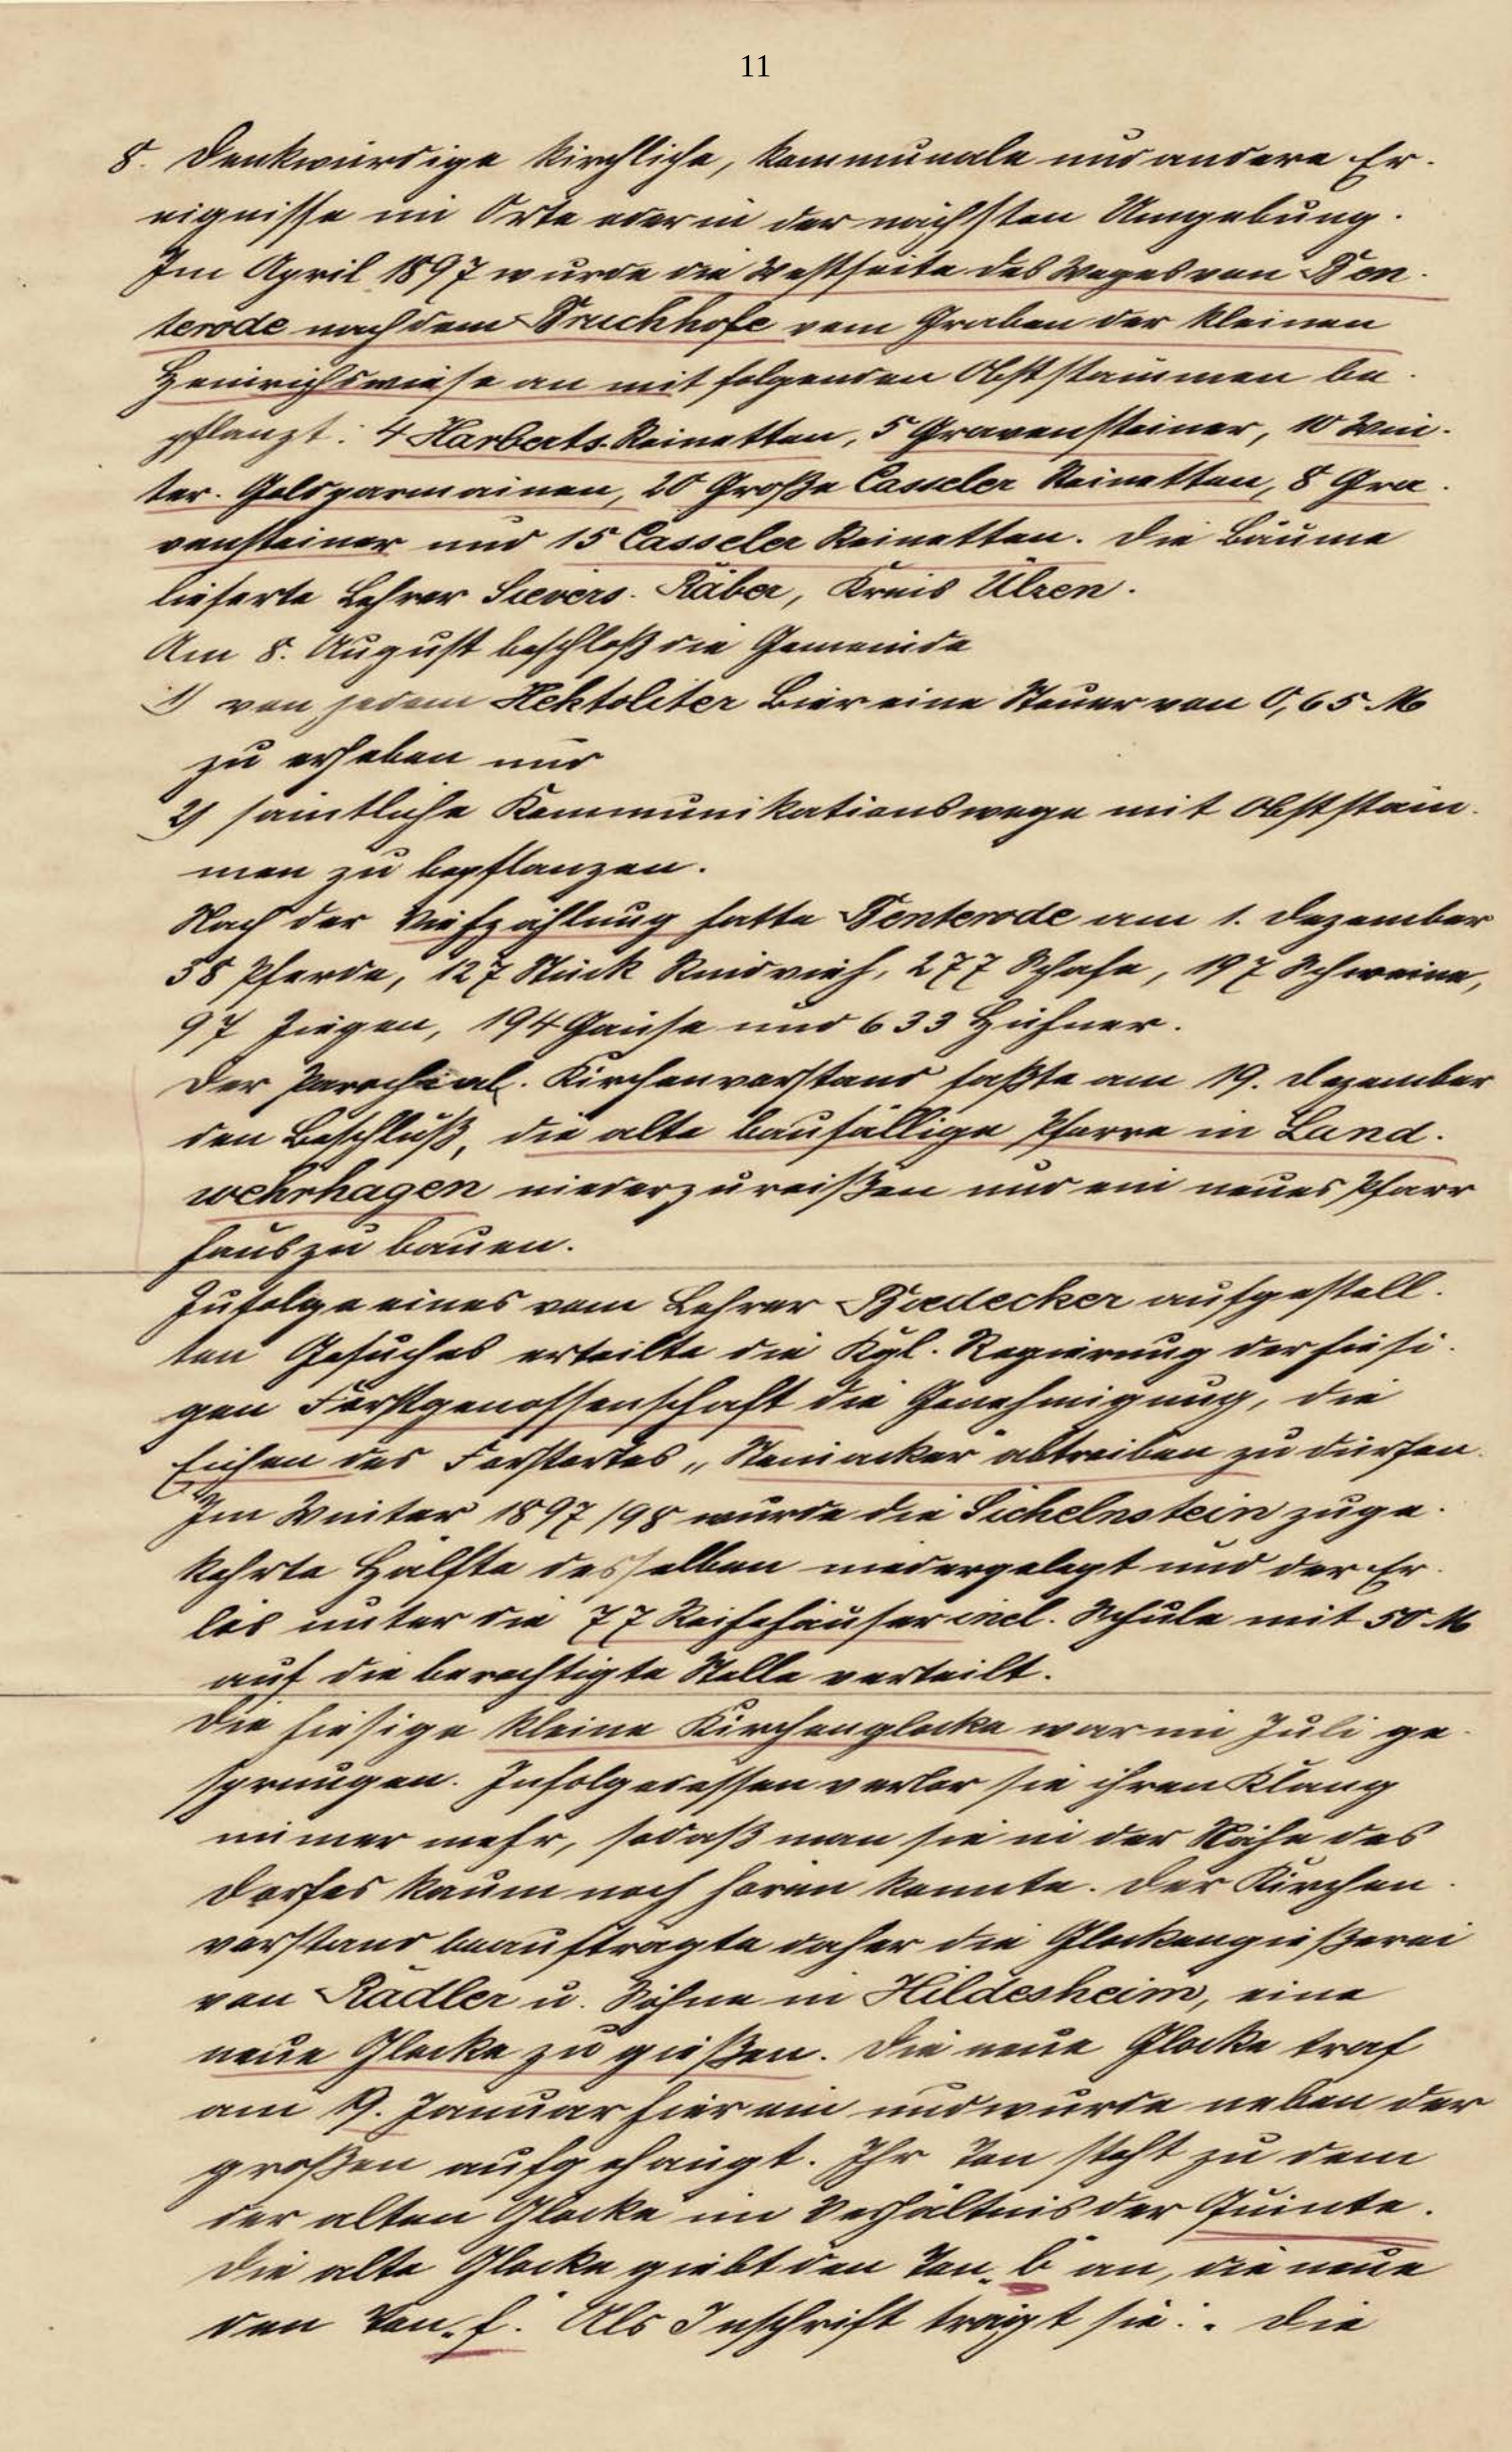 11
8. Denkwürdige kirchliche, kommunale und andere Er-
eignisse im Orte oder in der nächsten Umgebung.
Im April 1897 wurde die Westseite des Weges von Ben-
terode nach dem Bruchhofe vom Graben der kleinen
Heinrichswiese an mit folgenden Obststämmen be-
pflanzt: 4 Harberts Reinetten, 5 Gravensteiner, 10 Win-
ter-Goldparmainen, 20 Große Casseler Reinetten, 8 Gra-
vensteiner und 15 Casseler Reinetten. Die Bäume
lieferte Lehrer Sievers-Räber, Kreis Ülzen.
Am 8. August beschloß die Gemeinde
1) von jedem Hektoliter Bier eine Steuer von 0,65 M
zu erheben und
2) sämtliche Kommunikationswege mit Obststäm-
men zu bepflanzen.
Nach der Viehzählung hatte Benterode am 1. Dezember
38 Pferde, 127 Stück Rindvieh, 277 Schafe, 197 Schweine,
97 Ziegen, 194 Gänse und 633 Hühner.
Der Parochial-Kirchenvorstand faßte am 19. Dezember
den Beschluß, die alte baufällige Pfarre in Land-
wehrhagen niederzureißen und ein neues Pfarr
haus zu bauen.
Zufolge eines vom Lehrer Bædecker aufgestell-
ten Gesuches erteilte die Kgl. Regierung der hiesi-
gen Forstgenossenschaft die Genehmigung, die
Eichen des Forstortes „Steinacker" abtreiben zu dürfen.
Im Winter 1897/98 wurde die Sichelnstein zuge-
kehrte Hälfte desselben niedergelegt und der Er-
lös unter die 77 Reihehäuser incl. Schule mit 50 M
auf die berechtigte Stelle verteilt.
Die hiesige kleine Kirchenglocke war im Juli ge-
sprungen. Infolgedessen verlor sie ihren Klang
immer mehr, sodaß man sie in der Nähe des
Dorfes kaum noch hören konnte. Der Kirchen-
vorstand beauftragte daher die Glockengießerei
von Rädler u. Söhne in Hildesheim, eine
neue Glocke zu gießen. Die neue Glocke traf
am 19. Januar hier ein und wurde neben der
großen aufgehängt. Ihr Ton steht zu dem
der alten Glocke im Verhältnis der Quinte.
Die alte Glocke giebt den Ton „b" an, die neue
den Ton „f". Als Inschrift trägt sie: „Die